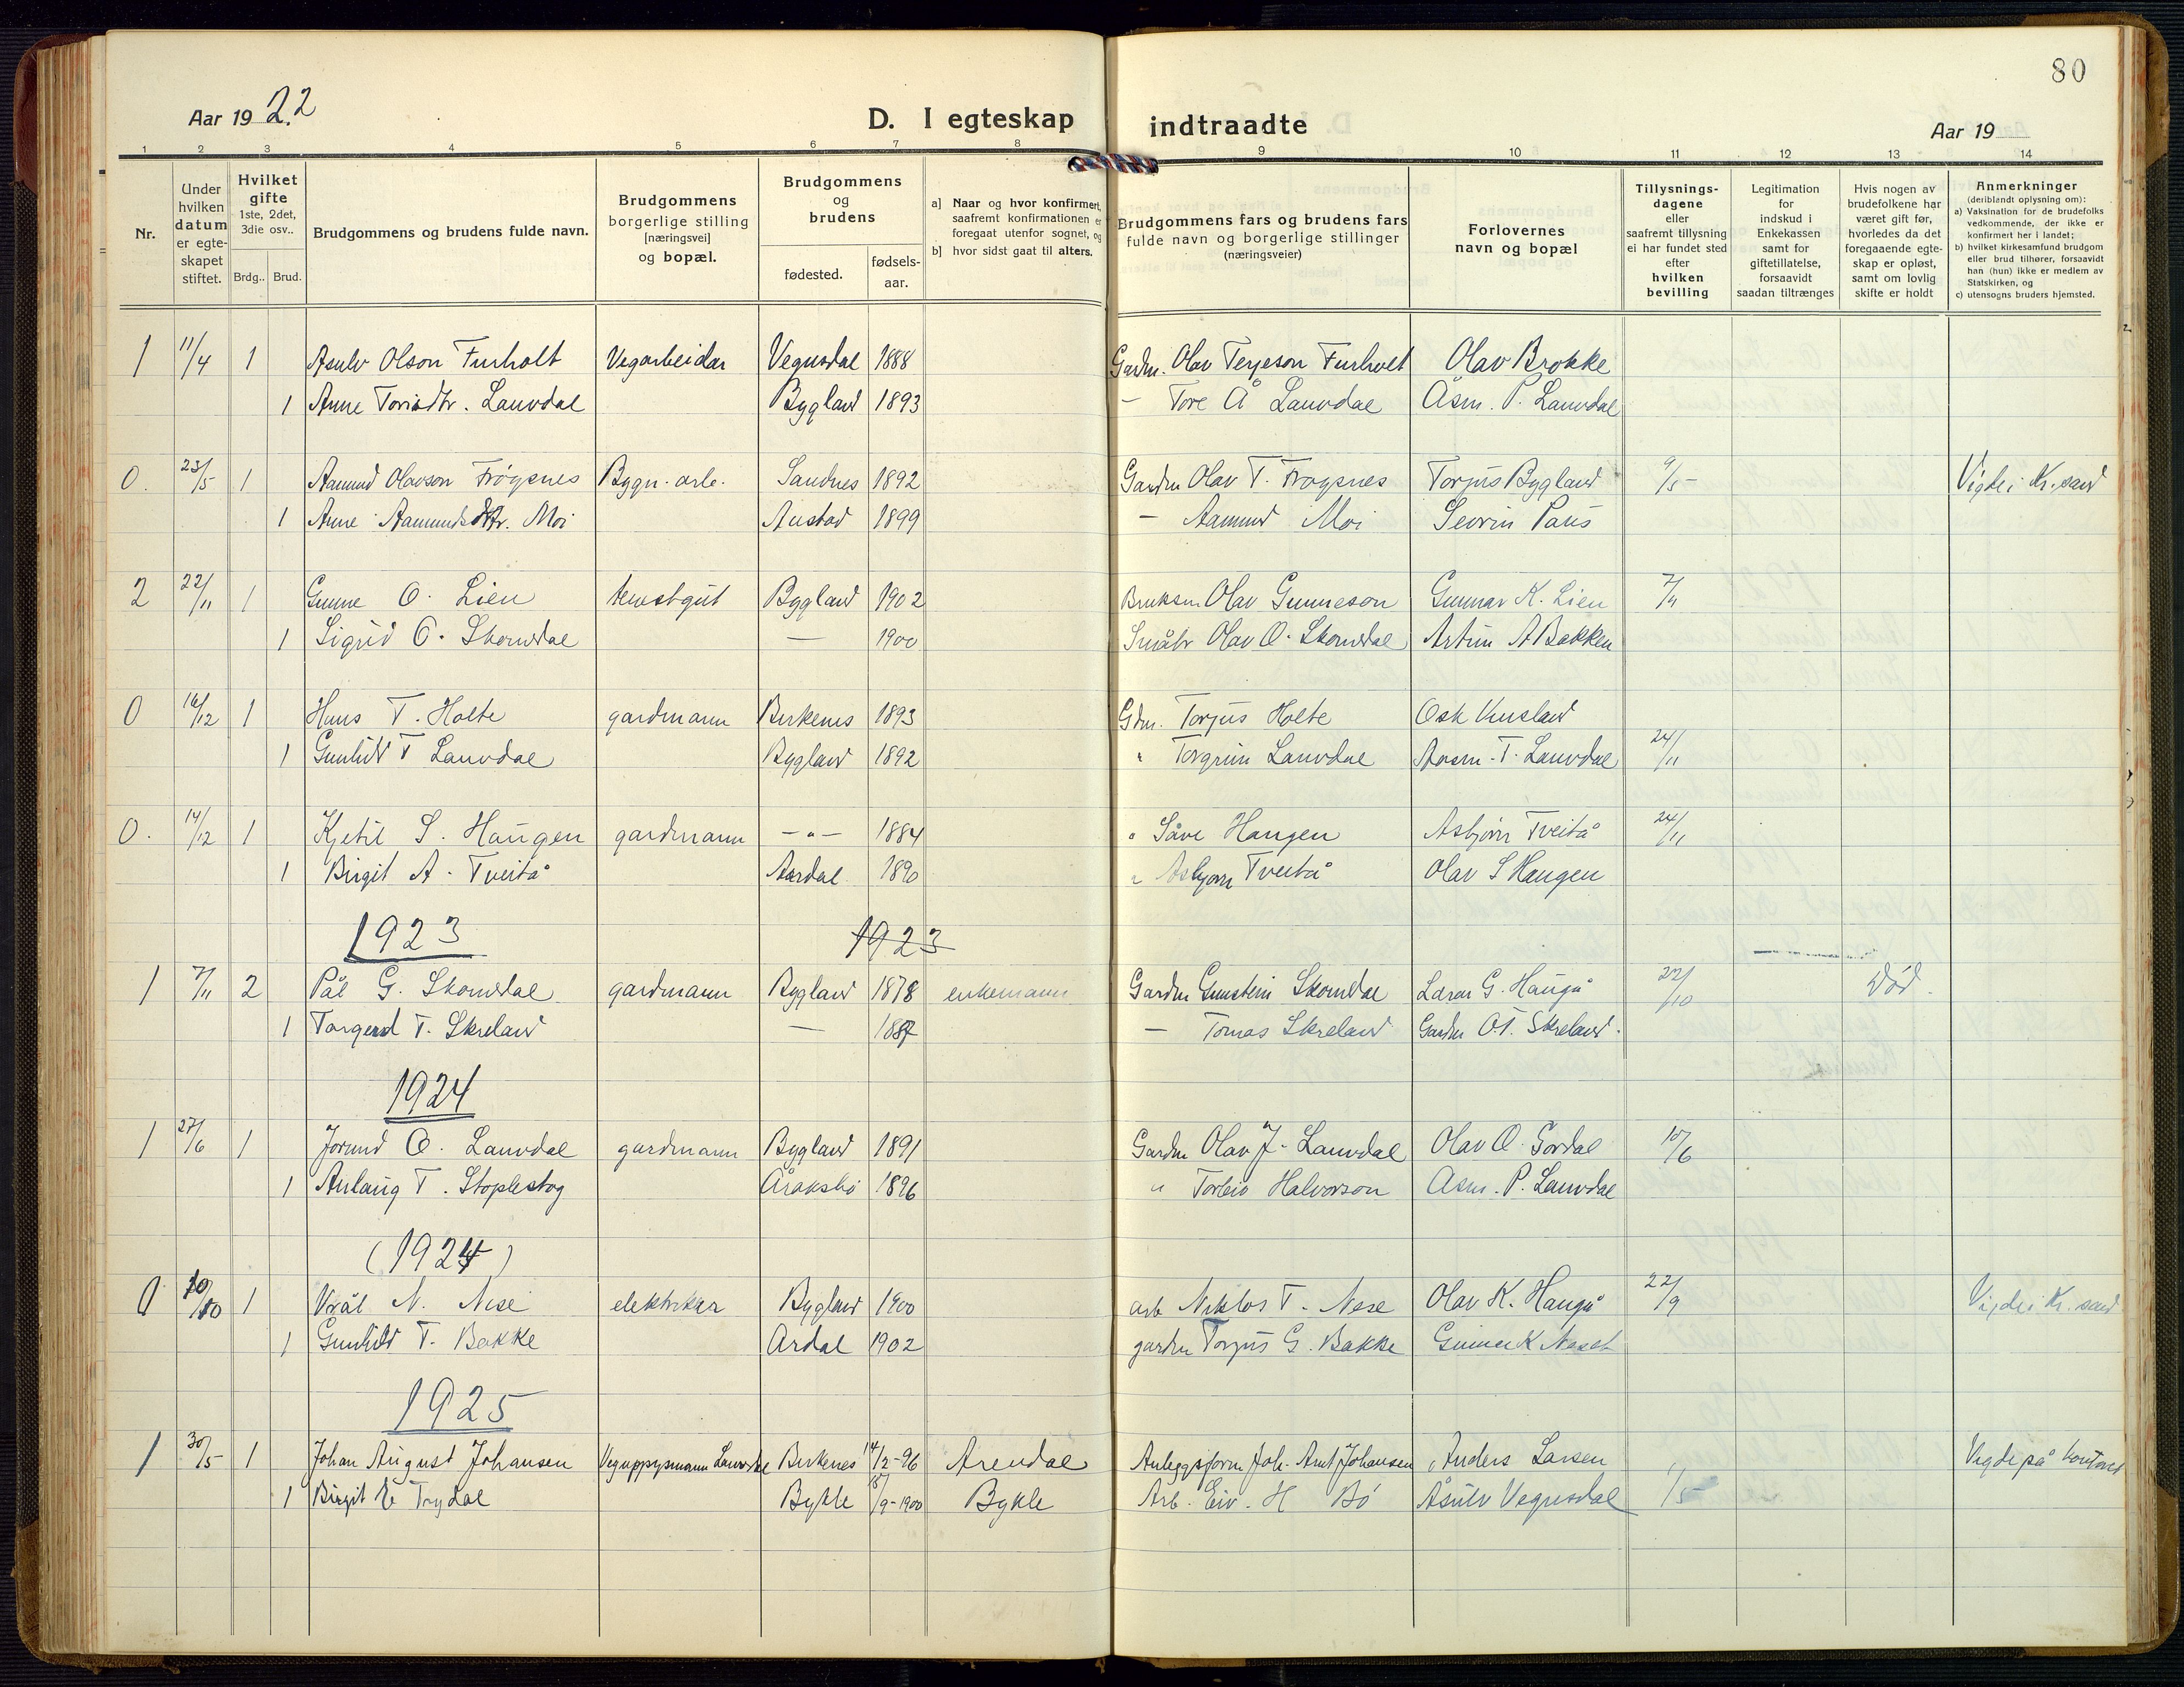 80
Aar 1922
D. I egteskap indtraadte
Aar 19
1 2 3 4 5 6 7 8 9 10 11 12 13 14
Nr.
Under hvilken datum er egteskapet stiftet.
Hvilket gifte 1ste, 2det, 3die osv..
Brdg.. Brud.
Brudgommens og brudens fulde navn.
Brudgommens borgerlige stilling [næringsvei] og bopæl.
Brudgommens og brudens
fødested. fødselsaar.
a] Naar og hvor konfirmert, saafremt konfirmationen er foregaat utenfor sognet, og
b] hvor sidst gaat til alters.
Brudgommens fars og brudens fars fulde navn og borgerlige stillinger (næringsveier)
Forlovernes navn og bopæl
Tillysningsdagene eller saafremt tillysning ei har fundet sted efter hvilken bevilling
Legitimation for indskud i Enkekassen samt for giftetillatelse, forsaavidt saadan tiltrænges
Hvis nogen av brudefolkene har været gift før, hvorledes da det foregaaende egteskap er opløst, samt om lovlig skifte er holdt
Anmerkninger (deriblandt oplysning om):
a) Vaksination for de brudefolks vedkommende, der ikke er konfirmert her i landet;
b) hvilket kirkesamfund brudgom eller brud tilhører, forsaavidt han (hun) ikke er medlem av Statskirken, og
c) utensogns bruders hjemsted.
1 11/4 1 Asulv Olson Furholt Vegarbeidar Vegusdal 1888 Gardm. Olav Terjeson Furholt Olav Brokke
1 Anne Torisdtr. Lauvdal Bygland 1893 – Tore Å Lauvdal Åsm. P. Lauvdal
0. 23/5 1 Aamund Olavson Frøysnes Bygn. arb. Sandnes 1892 Gardm Olav T. Frøysnes Torjus Bygland 9/5 Vigde i Kr.sand
1 Anne Aamundsdtr. Moi Austad 1899 – Aamund Moi Sevrin Paus
2 22/11 1 Gunne O. Lien tenestgut Bygland 1902 Bruksm Olav Gunneson Gunnar K. Lien 7/11
1 Sigrid O. Skomdal — 1900 Småbr Olav O. Skomdal Artun A Bakken
0 16/12 1 Hans T. Holte gardmann Birkenes 1893 Gdm. Torjus Holte Osk
1 Gunhild T Lauvdal Bygland 1892 " Torgrim Lauvdal Aasm. T. Lauvdal 24/11
0. 14/12 1 Kjetil S. Haugen gardmann –"– 1884 " Såve Haugen Asbjørn Tveitå 24/11
1 Birgit A. Tveitå Aardal 1890 " Asbjørn Tveitå Olav S Haugen
1923 1923
1 7/11 2 Pål G. Skomdal gardmann Bygland 1878 enkemann Gardm Gunstein Skomdal Lárar G. Haugå 22/10 død
1 Torgerd T. Skreland — 1887 — Tomas Skreland Gardm O.T. Skreland.
1924
1 27/6 1 Jorund O. Lauvdal gardmann Bygland 1891 Gardm Olav J. Lauvdal Olav O. Gordal 10/6
1 Anlaug T. Stoplestog Åraksbø 1896 " Torleiv Halvorson Asm. P. Lauvdal
(1924)
0 10/10 1 Vrål N. Nese elektrikar Bygland 1900 arb Niklos T. Nese Olav K. Haugå 22/9 Vigde i Kr. sand
1 Gunhild T. Bakke Ardal 1902 gardm Torjus G. Bakke Gunnar K Neset
1925
1 30/5 1 Johan August Johansen Veguppsynsmann Lauvdal Birkenes 14/2-96 Arendal Anleggsform Joh. Arnt Johansen Anders Larsen Vigde på kontoret
1 Birgit E Trydal Bykle 15/9-1900 Bykle Arb. Eiv. H Bö Åsulv Vegusdal 1/5